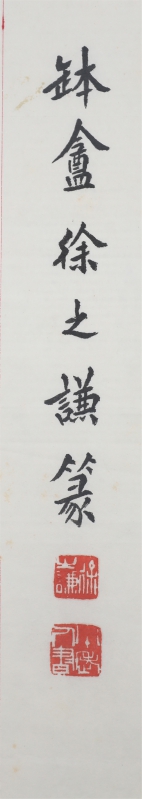 缽盦徐之謙篆